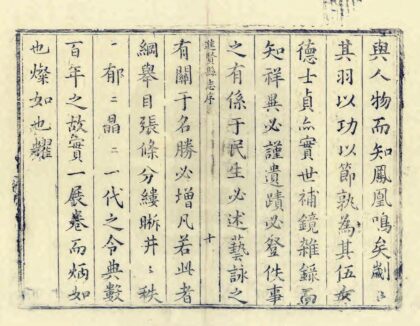 與人物而知鳳凰鳴矣劌〻
其羽以功以節孰為其伍女
德士貞亦實世補鏡雜錄而
知祥異必謹遺蹟必登佚事
之有係于民生必述藝詠之
進賢縣志序 十
有關于名勝必增凡若此者
綱舉目張條分縷晰井〻秩
〻郁〻晶〻一代之令典數
百年之故實一展卷而炳如
也燦如也耀